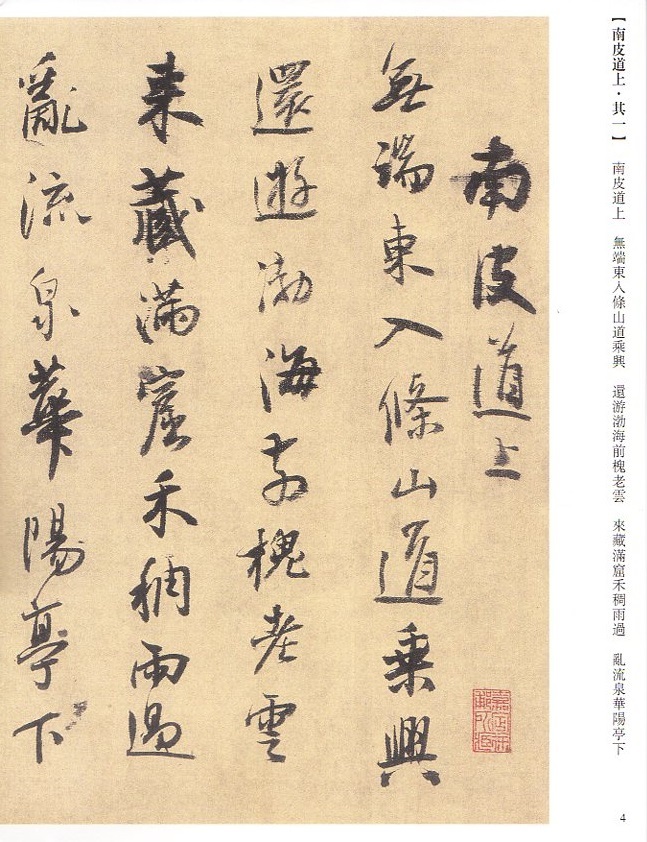 【南皮道上·其一】 南皮道上 無端東入條山道乘興 還游渤海前槐老雲 來藏滿窟禾稠雨過 亂流泉華陽亭下
南皮道上
無端東入條山道乘興
還遊渤海前槐老雲
來藏滿窟禾稠雨過
亂流泉華陽亭下
4